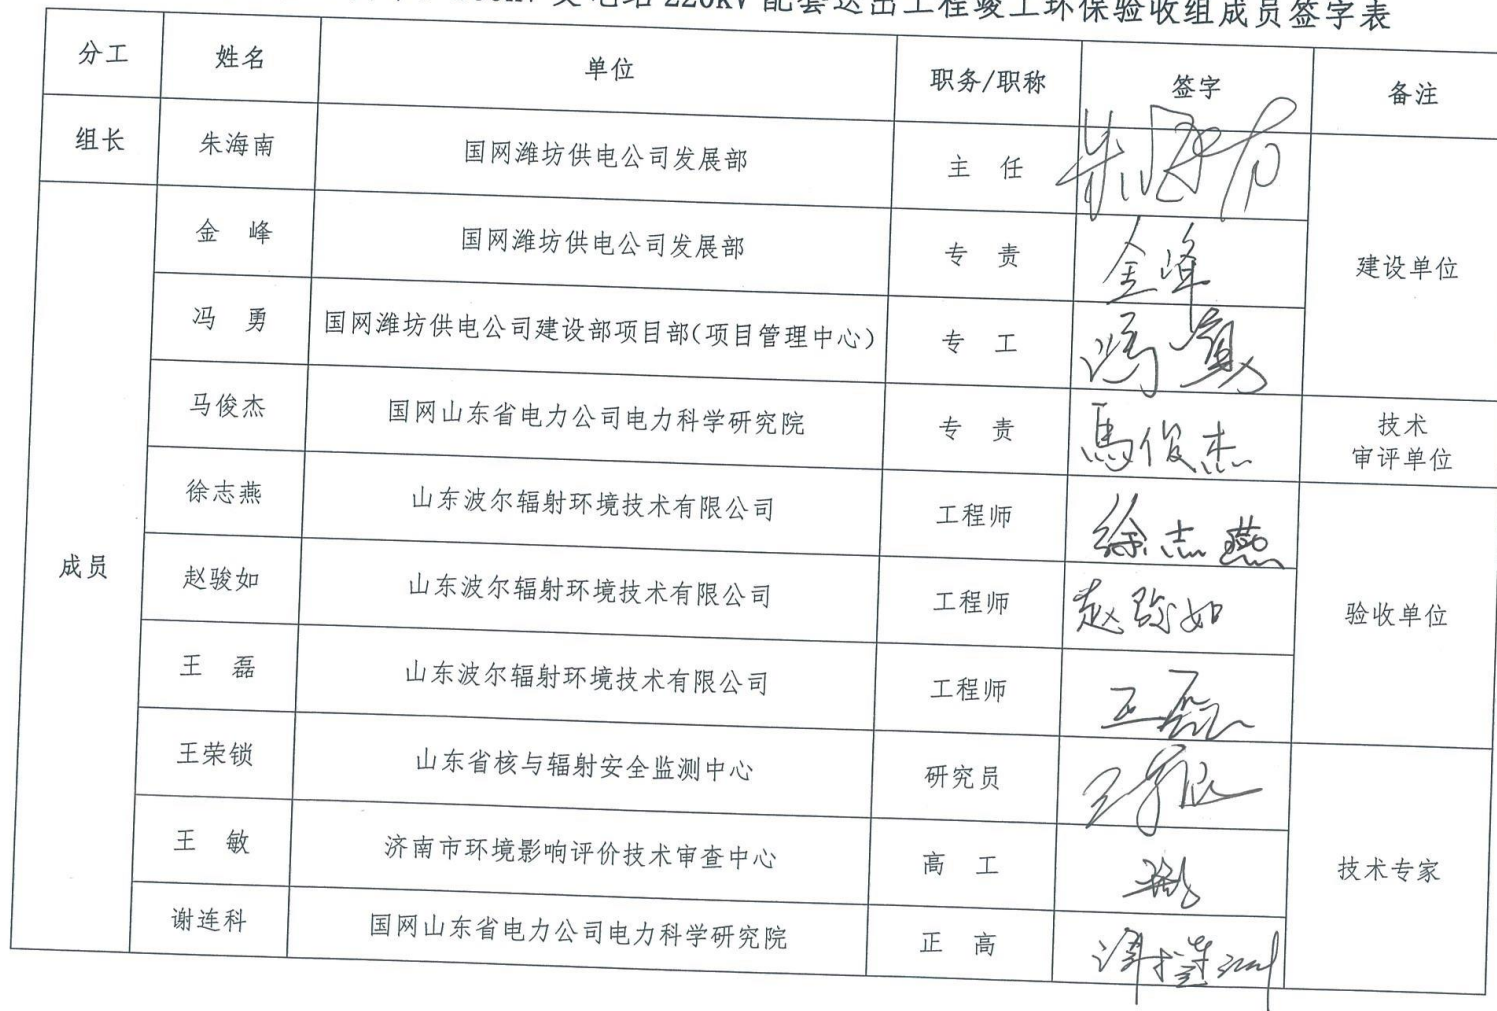 220kV 配套送出工程竣工环保验收组成员签字表
分工 姓名 单位 职务/职称 签字 备注
组长 朱海南 国网潍坊供电公司发展部 主 任 朱海南
成员 金 峰 国网潍坊供电公司发展部 专 责 金峰 建设单位
冯 勇 国网潍坊供电公司建设部项目部(项目管理中心) 专 工 冯勇
马俊杰 国网山东省电力公司电力科学研究院 专 责 馬俊杰 技术
审评单位
徐志燕 山东波尔辐射环境技术有限公司 工程师 徐志燕
赵骏如 山东波尔辐射环境技术有限公司 工程师 赵骏如 验收单位
王 磊 山东波尔辐射环境技术有限公司 工程师 王磊
王荣锁 山东省核与辐射安全监测中心 研究员
王 敏 济南市环境影响评价技术审查中心 高 工 技术专家
谢连科 国网山东省电力公司电力科学研究院 正 高